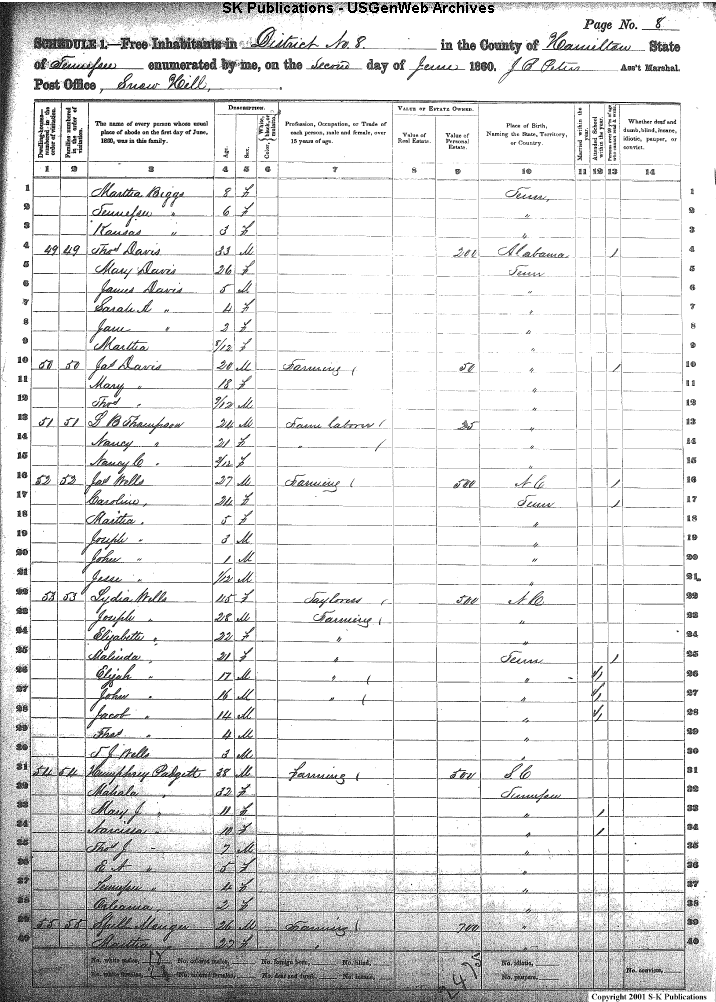 SK Publications - USGenWeb Archives
Page No. 8
SCHEDULE 1.—Free Inhabitants in District No 8. in the County of Hamilton State
of Tennessee enumerated by me, on the Second day of June 1860. J B Peters Ass't Marshal.
Post Office, Snow Hill,
Dwelling-houses—numbered in the order of visitation. Families numbered in the order of visitation. The name of every person whose usual place of abode on the first day of June, 1860, was in this family. DESCRIPTION. Age. Sex. Color, White, black, or mulatto. Profession, Occupation, or Trade of each person, male and female, over 15 years of age. VALUE OF ESTATE OWNED. Value of Real Estate. Value of Personal Estate. Place of Birth, Naming the State, Territory, or Country. Married within the year. Attended School within the year. Whether deaf and dumb, blind, insane, idiotic, pauper, or convict.
1 2 3 4 5 6 7 8 9 10 11 12 13 14
1 Martha Biggs 8 F Tenn, 1
2 Tennessee " 6 F " 2
3 Kansas " 3 F " 3
4 49 49 Thos Davis 33 M 200 Alabama 1 4
5 Mary Davis 26 F Tenn 5
6 James Davis 5 M " 6
7 Sarah A " 4 F " 7
8 Jane " 2 F " 8
9 Martha 8/12 F " 9
10 50 50 Jas Davis 20 M Farming 50 " 1 10
11 Mary " 18 F " 11
12 Thos " M " 12
13 51 51 B Thompson 24 M Farm laborer 25 " 13
14 Nancy " 21 F " " 14
15 Nancy C " F " 15
16 52 52 Jas Wells 27 M Farming 500 N C 1 16
17 Caroline, 24 F Tenn 1 17
18 Martha 5 F " 18
19 Joseph " 3 M " 19
20 John " 1 M " 20
21 Jesse " 1/12 M " 21
22 53 53 Lydia Wells 45 F Tayloress 500 N C 22
23 Joseph " 28 M Farming " 23
24 Elizabeth " 22 F " " 24
25 Malinda 21 F " Tenn 1 25
26 Elijah " 17 M " " 1 26
27 John " 16 M " " 1 27
28 Jacob " 14 M " 1 28
29 Thos " 4 M " 29
30 Wells 3 M " 30
31 54 54 Humphrey Padgett 38 M Farming 500 S C 31
32 Mahala " 32 F Tennessee 32
33 Mary J " 11 F " 1 33
34 Narcissa " 10 F " 1 34
35 Thos J " 7 M " 35
36 E A " 5 F " 36
37 Tennessee " 4 F " 37
38 2 F " 38
39 55 55 26 M Farming 700 " 39
40 Martha " 22 F " " 40
No. white males, 17 No. colored males, No. foreign born, No. blind, No. idiotic,
No. white females, No. colored females, No. deaf and dumb, No. insane, No. paupers, No. convicts,
Copyright 2001 S-K Publications